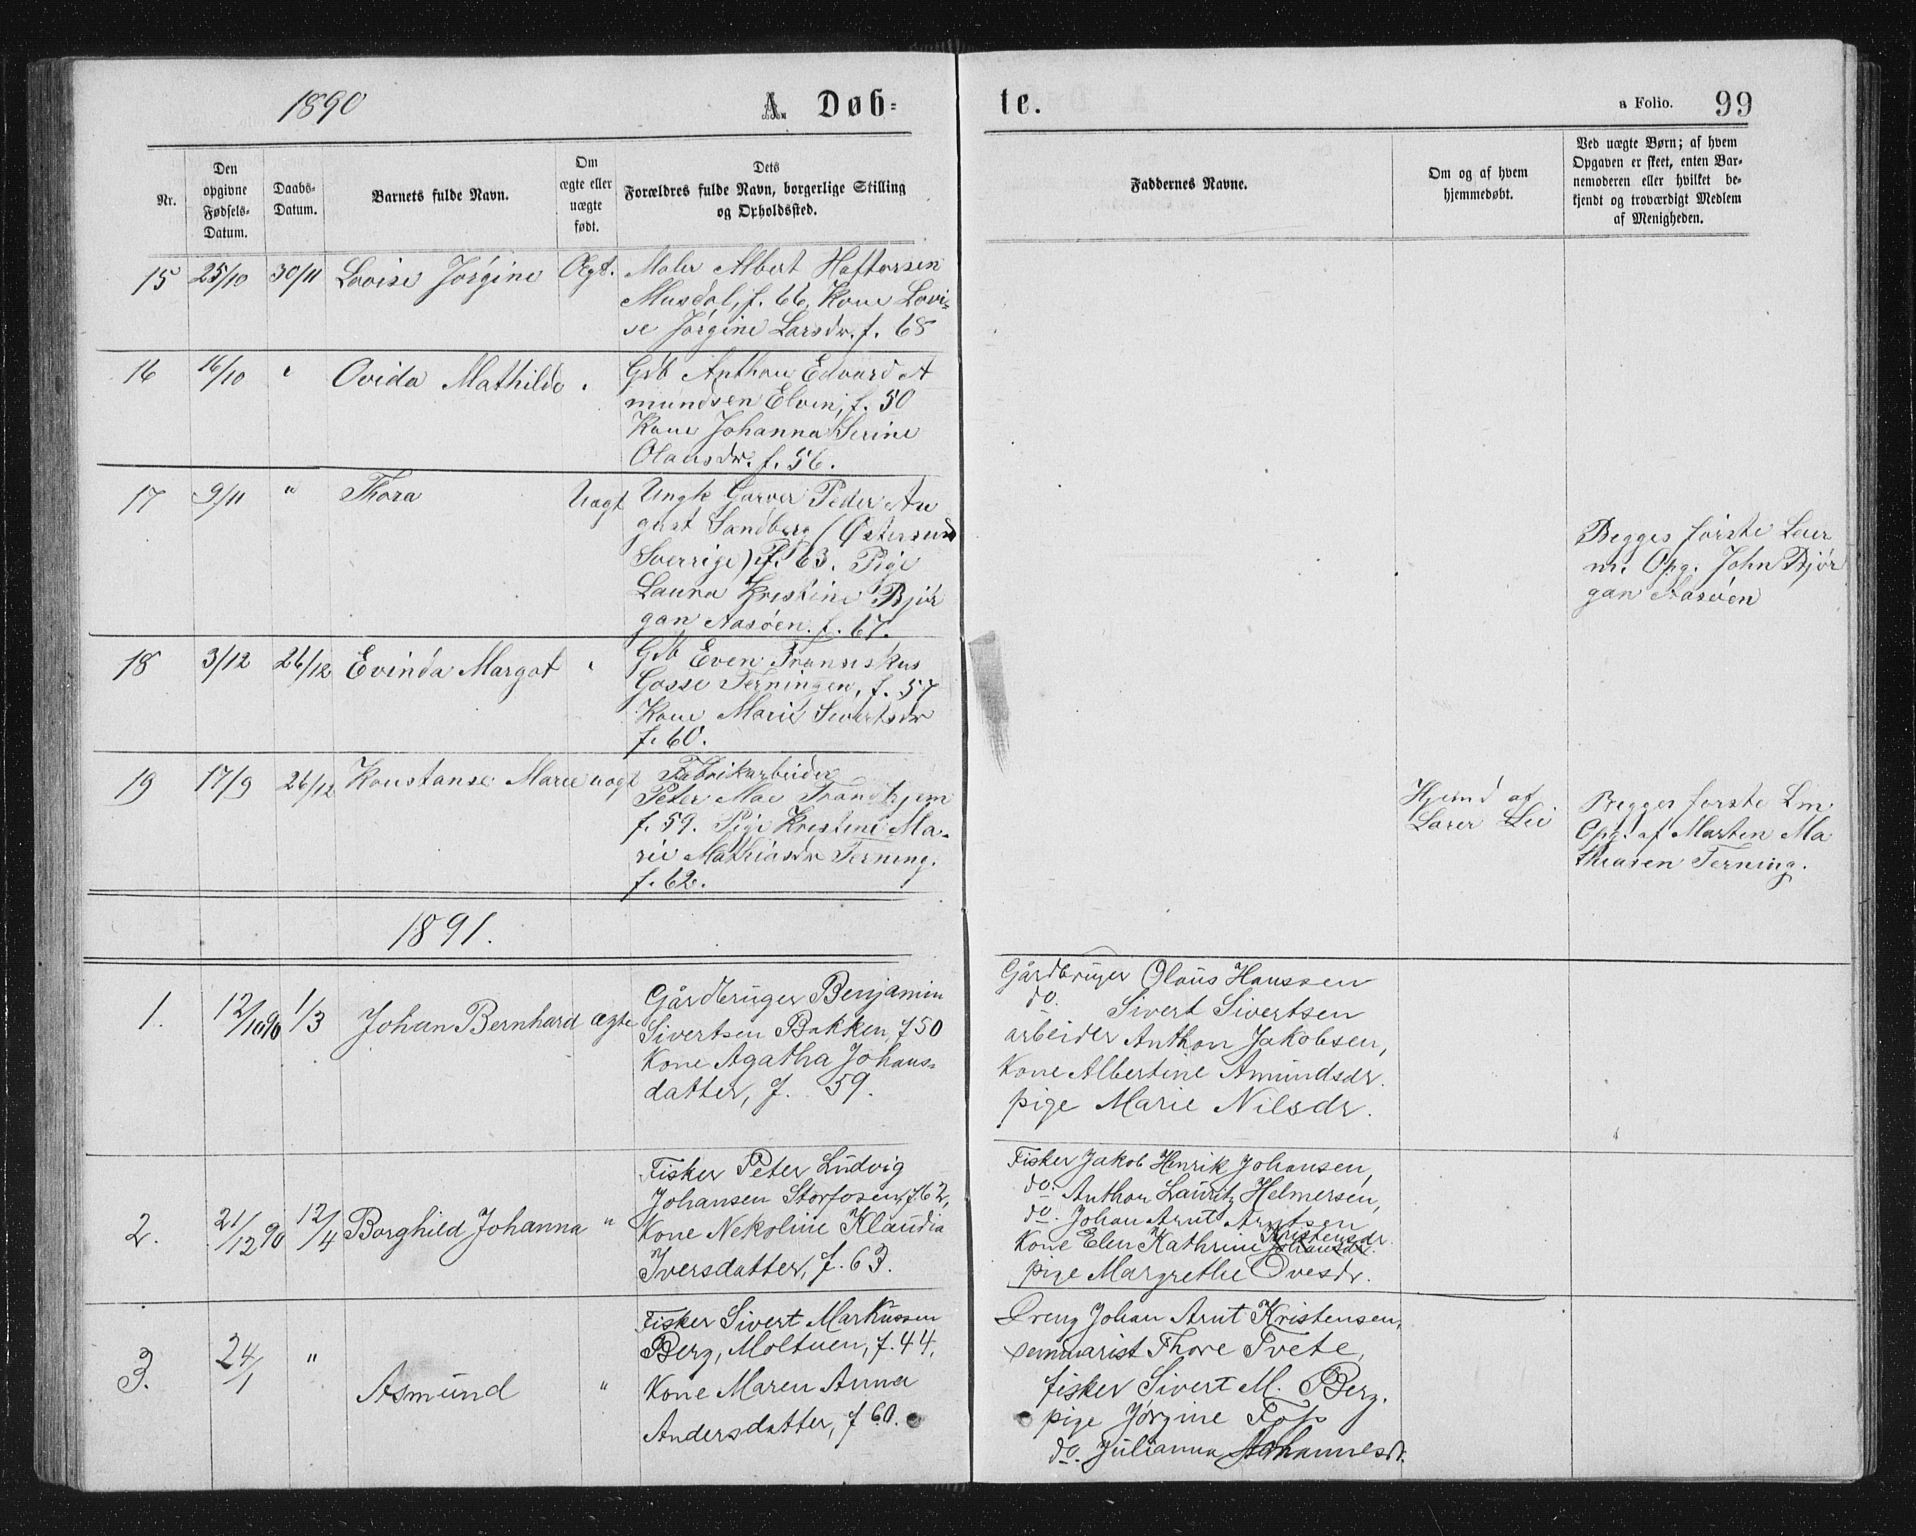 1890
A. Døb-
te.
a Folio. 99
Nr.
Den
opgivne
Fødsels-
Datum.
Daabs-
Datum.
Barnets fulde Navn.
Om
ægte eller
uægte
født.
Dets
Forældres fulde Navn, borgerlige Stilling
og Opholdssted.
Faddernes Navne.
Om og af hvem
hjemmedøbt.
Ved uægte Børn; af hvem
Opgaven er skeet, enten Bar-
nemoderen eller hvilket be-
kjendt og troværdigt Medlem
af Menigheden.
15 25/10 30/11 Lovise Jørgine Ægt. Maler Albert Haftorsen
Musdal, f. 66, Kone Lovi-
se Jørgine Larsdr. f. 68
16 16/10 " Ovida Mathilde " Gdb Anthon Edvard A
mundsen Elven, f. 50
Kone Johanna Serine
Olausdr. f. 56.
17 9/11 " Thora Uægt Ungk Garver Peder Au
gust Sandberg (Østersund
Sverrige) f. 63. Pige
Laura Kristine Bjør
gan Aasøen. f. 67.
Begges første Leier
m. Opg. John Bjør
gan Aasøen
18 3/12 26/12 Evinda Margot " Gdb Even Fransiskus
Gosse Terningen, f. 57
Kone Marie Sivertsdr
f. 60.
19 17/9 26/12 Konstanse Marie uægt Fabrikarbeider
Peter Moe Trondhjem
f. 59. Pige Kristine Ma-
rie Mathiasdr Terning.
f. 62.
Hjemd af
Lærer Lie
Begges første Lm.
Opg. af Morten Ma
thiasen Terning.
1891.
1. 12/10 90 1/3 Johan Bernhard ægte Gårdbruger Benjamin
Sivertsen Bakken, f 50
Kone Agatha Johans-
datter, f. 59.
Gårdbruger Olaus Hanssen
do. Sivert Sivertsen
arbeider Anthon Jakobsen,
Kone Albertine Amundsdr.
pige Marie Nilsdr.
2. 21/12 90 12/4 Borghild Johanna " Fisker Peter Ludvig
Johansen Storfosen, f 62,
Kone Nekoline Klaudia
Iversdatter, f. 63.
Fisker Jakob Henrik Johansen,
do. Anthon Lauritz Helmersen,
do. Johan Arnt Arntsen
Kone Elen Kathrine Johansdr. Kristensdr.
pige Margrethe Ovesdr.
3. 24/1 " Asmund " Fisker Sivert Markussen
Berg, Moltuen, f. 44,
Kone Maren Anna
Andersdatter, f 60.
Dreng Johan Arnt Kristensen,
seminarist Thore Tvete,
fisker Sivert M. Berg.
pige Jørgine Foss
do. Julianna Johannesdr.